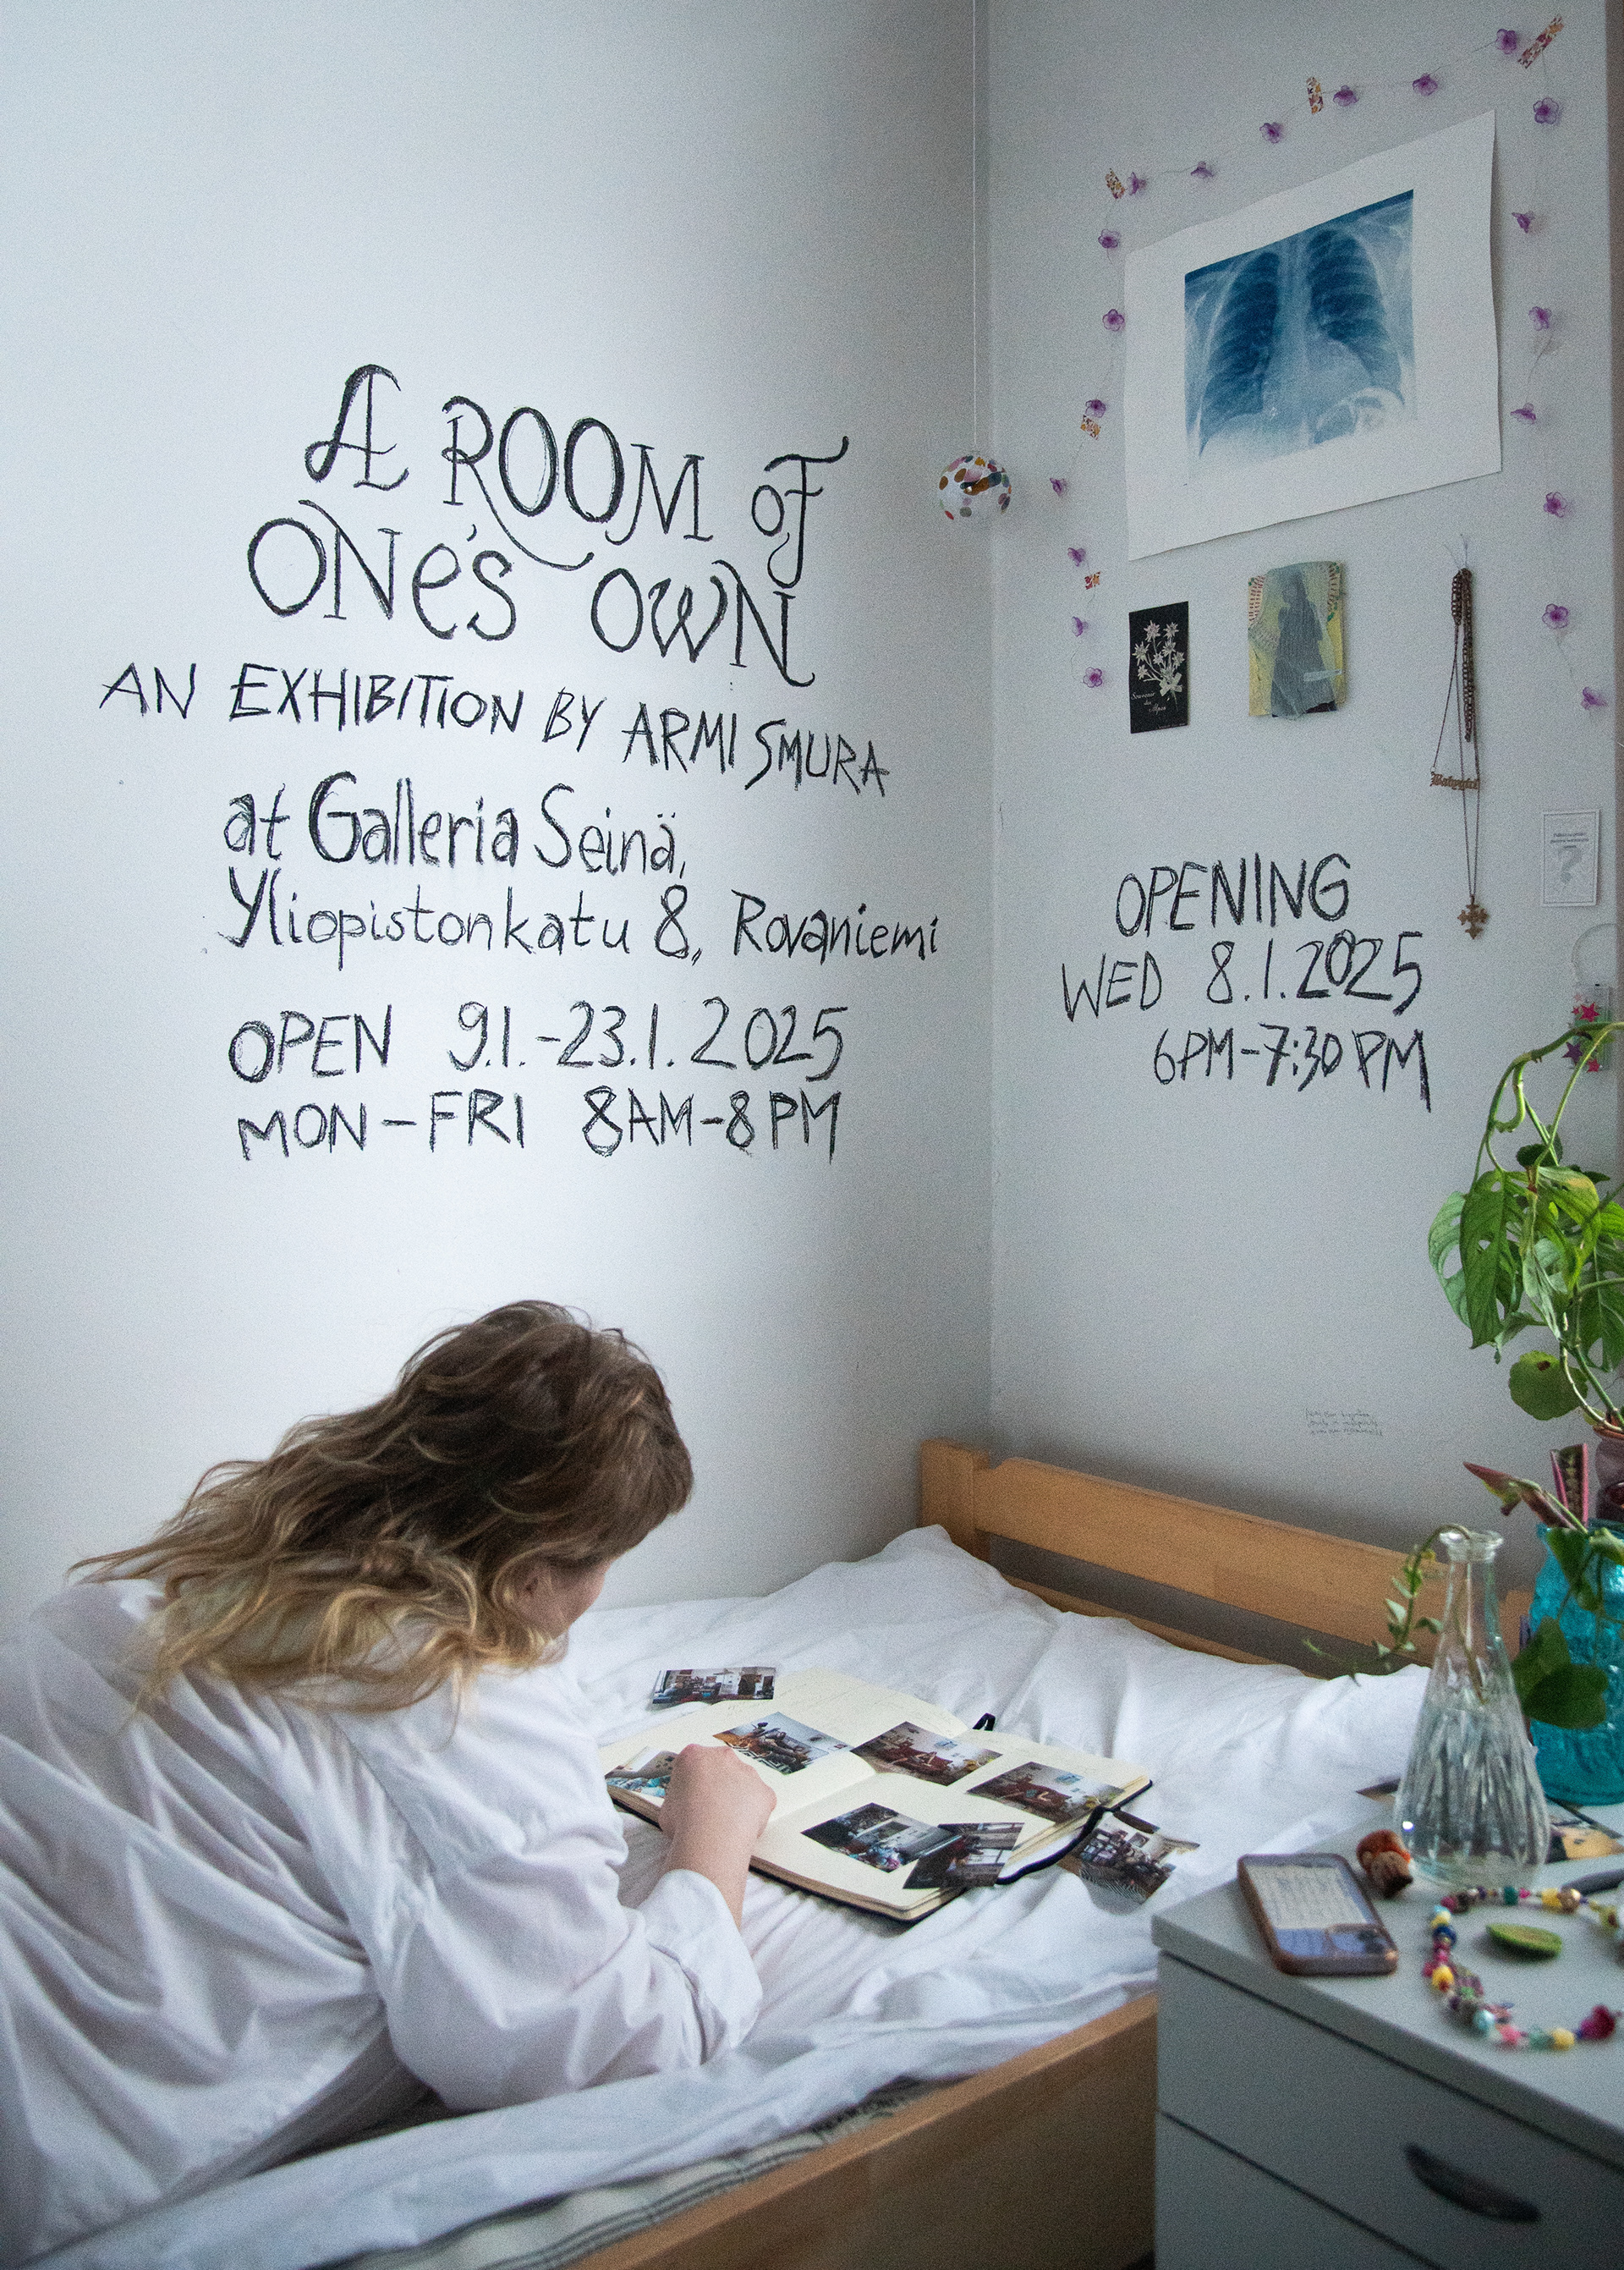 A ROOM OF
ONe'S OWN
AN EXHIBITION BY ARMI SMURA
at Galleria Seinä,
Yliopistonkatu 8, Rovaniemi
OPEN 9.1.-23.1.2025
MON-FRI 8AM-8PM
OPENING
WED 8.1.2025
6PM-7:30PM
Souvenir
des Alpes
Babygirl
?